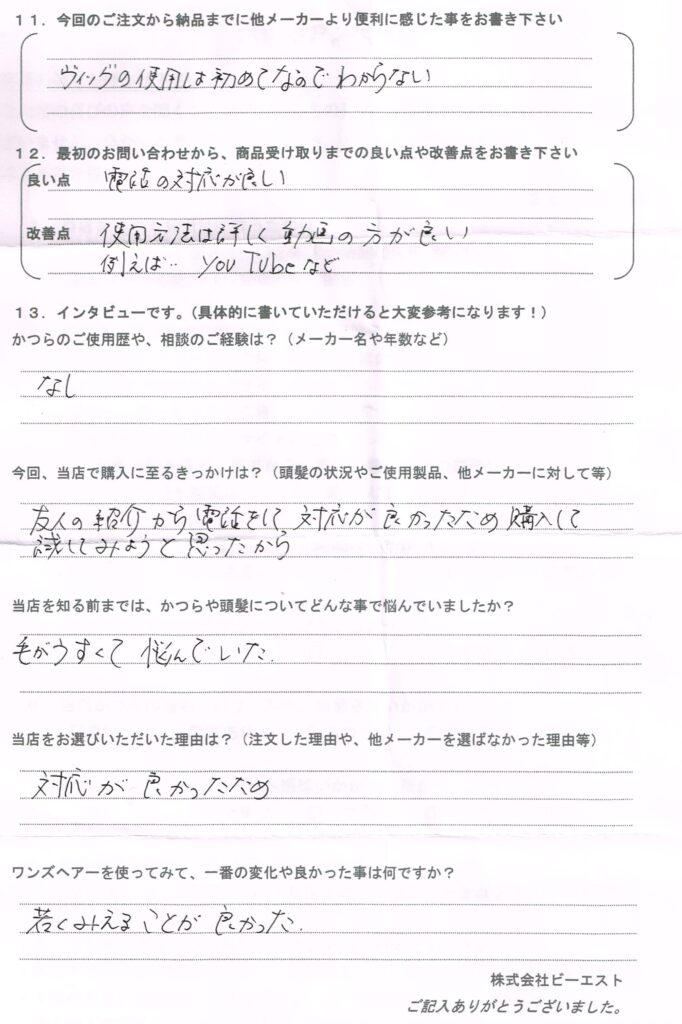 １１．今回のご注文から納品までに他メーカーより便利に感じた事をお書き下さい
ヴィッグの使用は初めてなのでわからない
１２．最初のお問い合わせから、商品受け取りまでの良い点や改善点をお書き下さい
良い点 電話の対応が良い
改善点 使用方法は詳しく動画の方が良い
例えば‥ YOU TUbeなど
１３．インタビューです。（具体的に書いていただけると大変参考になります！）
かつらのご使用歴や、相談のご経験は？（メーカー名や年数など）
なし
今回、当店で購入に至るきっかけは？（頭髪の状況やご使用製品、他メーカーに対して等）
友人の紹介から電話をして対応が良かったため購入して
試してみようと思ったから
当店を知る前までは、かつらや頭髪についてどんな事で悩んでいましたか？
毛がうすくて悩んでいた.
当店をお選びいただいた理由は？（注文した理由や、他メーカーを選ばなかった理由等）
対応が良かったため
ワンズヘアーを使ってみて、一番の変化や良かった事は何ですか？
若くみえることが良かった.
株式会社ビーエスト
ご記入ありがとうございました。